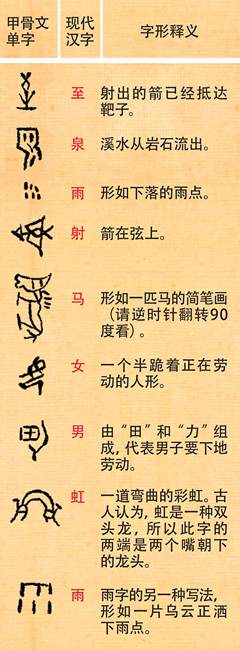 甲骨文 现代 字形释义
单字 汉字
至 射出的箭已经抵达
靶子。
泉 溪水从岩石流出。
雨 形如下落的雨点。
射 箭在弦上。
马 形如一匹马的简笔画
（请逆时针翻转90
度看）。
女 一个半跪着正在劳
动的人形。
男 由“田”和“力”组
成，代表男子要下地
劳动。
虹 一道弯曲的彩虹。古
人认为，虹是一种双
头龙，所以此字的
两端是两个嘴朝下
的龙头。
雨 雨字的另一种写法，
形如一片乌云正洒
下雨点。